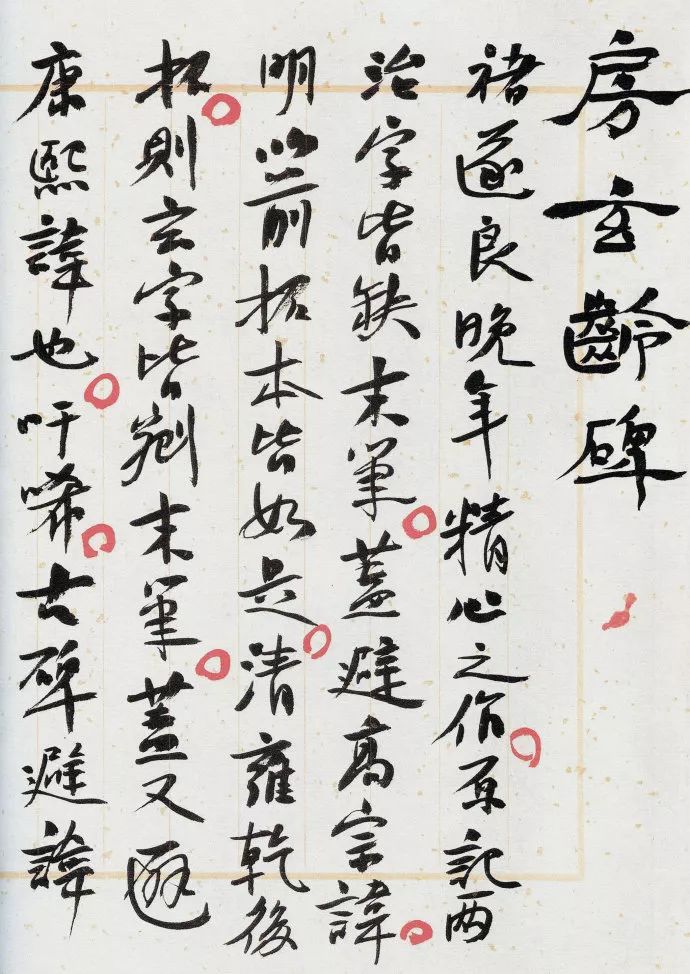 房玄齡碑
褚遂良晚年精心之作原記兩
治字皆缺末筆蓋避高宗諱
明以前拓本皆如是清雍乾後
拓則玄字皆剜末筆蓋又避
康熙諱也吁唏古碑避諱